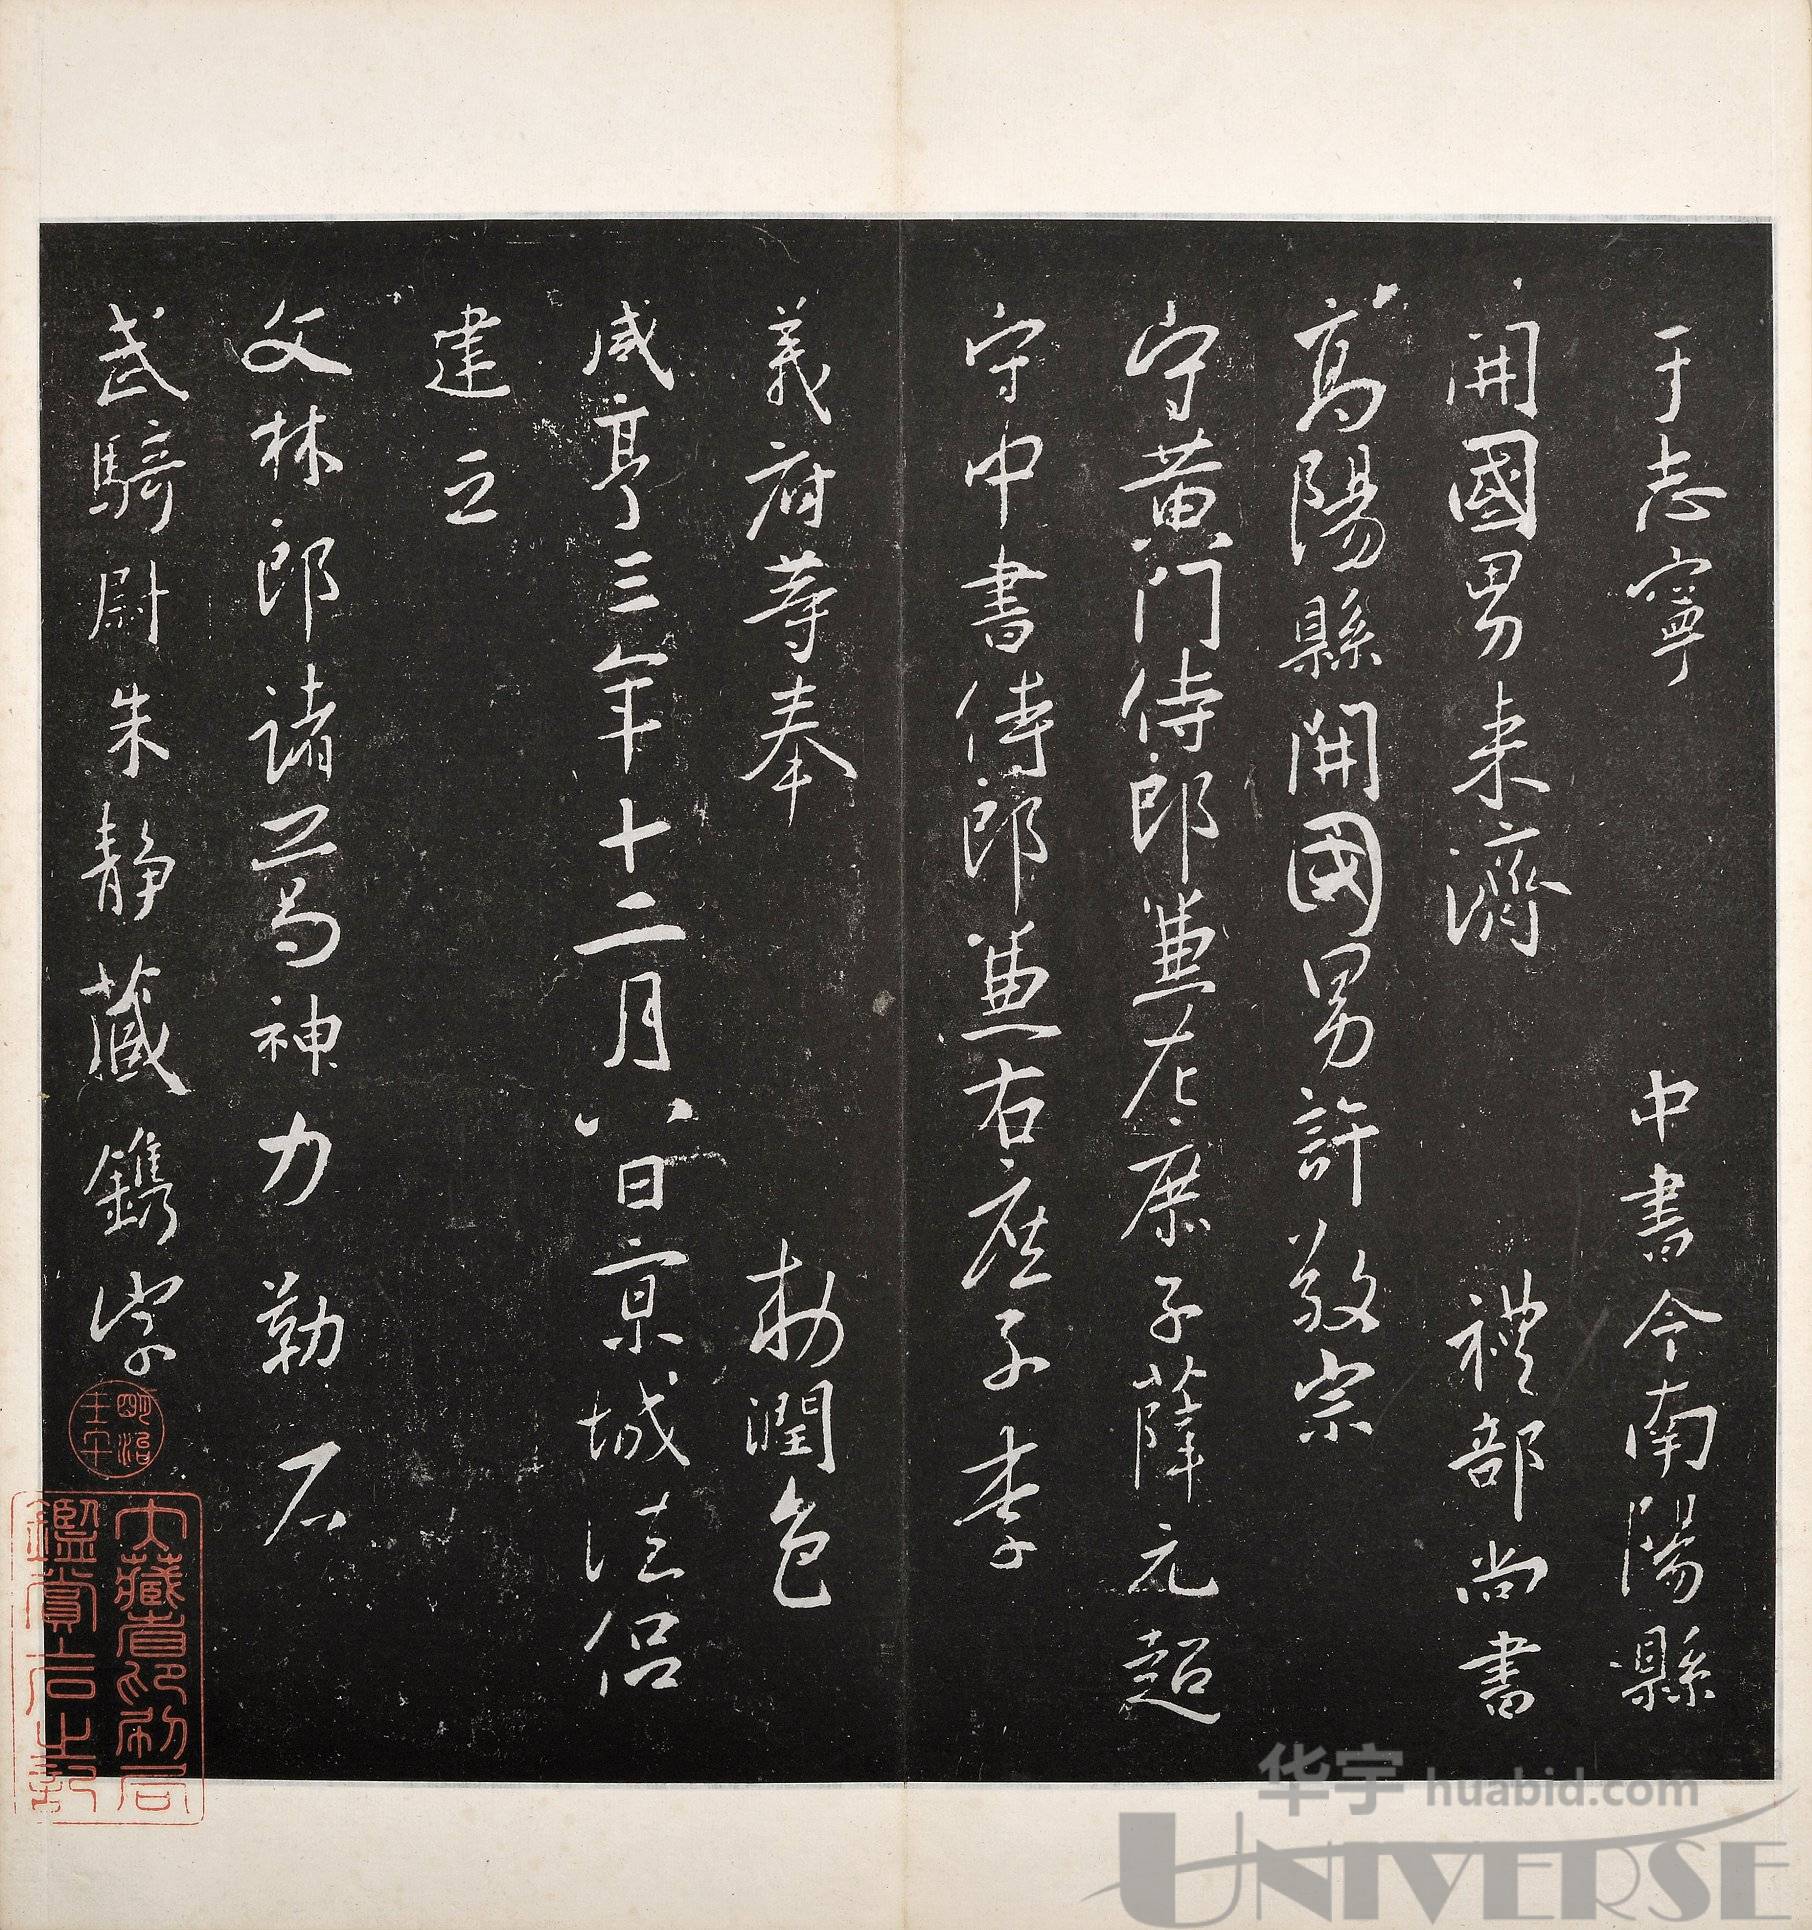 于志寧 中書令南陽縣
開國男来濟 禮部尚書
髙陽縣開國男許敬宗
守黄門侍郎兼左庶子薛元超
守中書侍郎兼右庶子李
義府等奉 敕潤色
咸亨三年十二月八日京城法侶
建立
文林郎諸葛神力勒石
武騎尉朱静藏鐫字
明治
壬午
大藏省印刷局
鑑賞金石之記
华宇 huabid.com
UNIVERSE